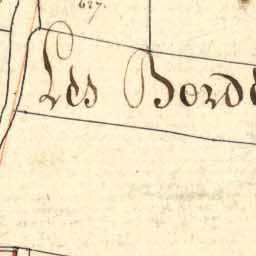 627.
Les Bord